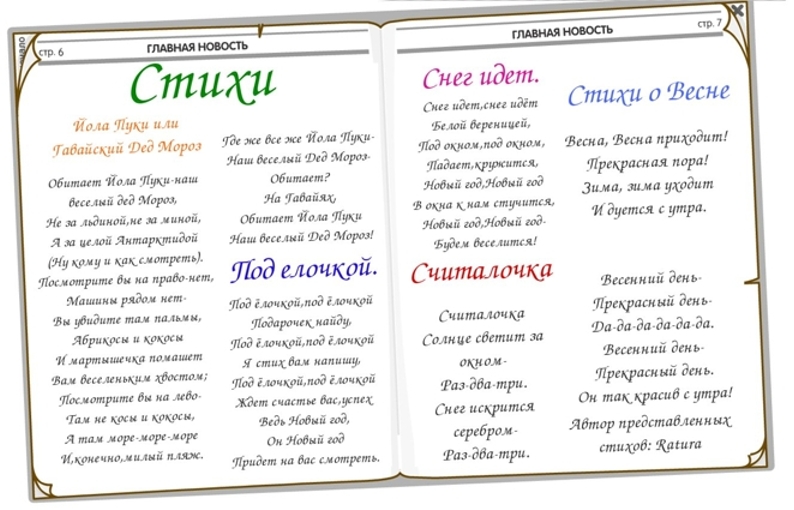 стр. 6
ГЛАВНАЯ НОВОСТЬ
Стихи
Йола Пуки или
Гавайский Дед Мороз
Обитает Йола Пуки-наш
веселый дед Мороз,
Не за льдиной,не за миной,
А за целой Антарктидой
(Ну кому и как смотреть).
Посмотрите вы на право-нет,
Машины рядом нет-
Вы увидите там пальмы,
Абрикосы и кокосы
И мартышечка помашет
Вам веселеньким хвостом;
Посмотрите вы на лево-
Там не косы и кокосы,
А там море-море-море
И,конечно,милый пляж.
Где же все же Йола Пуки-
Наш веселый Дед Мороз-
Обитает?
На Гавайях,
Обитает Йола Пуки
Наш веселый Дед Мороз!
Под елочкой.
Под ёлочкой,под ёлочкой
Подарочек найду,
Под ёлочкой,под ёлочкой
Я стих вам напишу,
Под ёлочкой,под ёлочкой
Ждет счастье вас,успех
Ведь Новый год,
Он Новый год
Придет на вас смотреть.
стр. 7
ГЛАВНАЯ НОВОСТЬ
Снег идет.
Снег идет,снег идёт
Белой вереницей,
Под окном,под окном,
Падает,кружится,
Новый год,Новый год
В окна к нам стучится,
Новый год,Новый год-
Будем веселится!
Считалочка
Считалочка
Солнце светит за
окном-
Раз-два-три.
Снег искрится
серебром-
Раз-два-три.
Стихи о Весне
Весна, Весна приходит!
Прекрасная пора!
Зима, зима уходит
И дуется с утра.
Весенний день-
Прекрасный день-
Да-да-да-да-да-да.
Весенний день-
Прекрасный день.
Он так красив с утра!
Автор представленных
стихов: Ratura